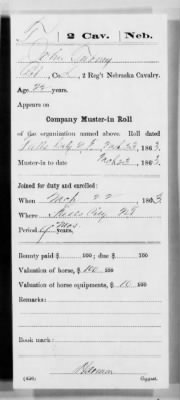 T | 2 Cav. | Neb.
John
Co. L, 2 Reg't Nebraska Cavalry.
Age 22 years.
Appears on
Company Muster-in Roll
of the organization named above. Roll dated
Falls City N.T. Mch 23, 1863.
Muster-in to date Mch 23, 1863.
Joined for duty and enrolled:
When Mch 22, 1863.
Where Falls City N.T.
Period 9 mos years.
Bounty paid $ 100; due $ 100
Valuation of horse, $ 100
Valuation of horse equipments, $ 10 100
Remarks:
Book mark:
(356)
Copyist.